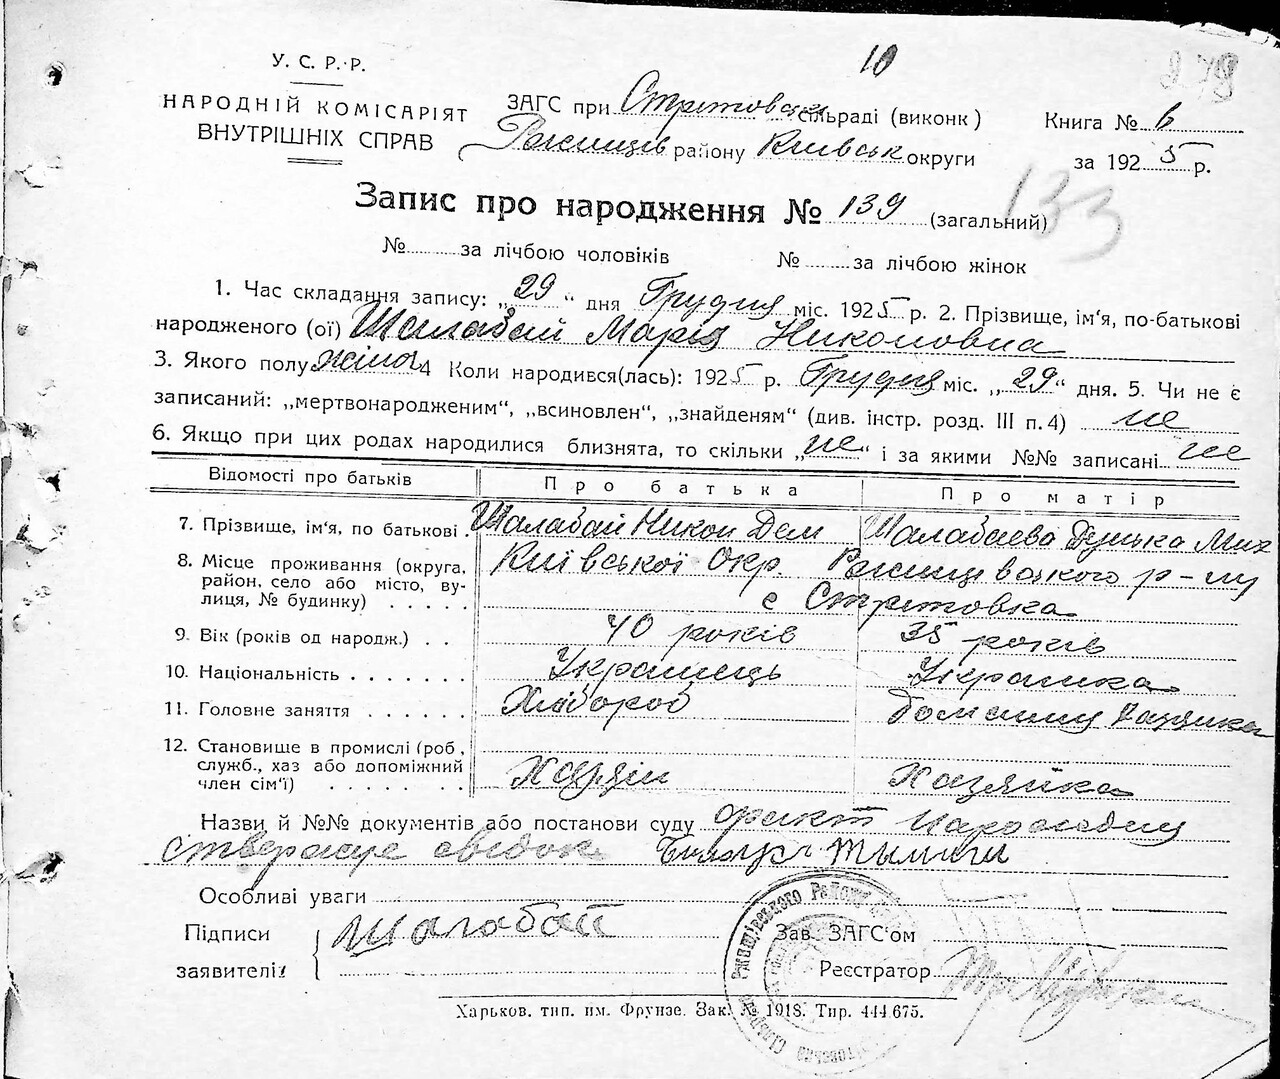 10
279
У. С. Р. Р.
НАРОДНІЙ КОМІСАРІЯТ
ВНУТРІШНІХ СПРАВ
ЗАГС при Стрітовськ сільраді (виконк)
Ржищів району Київськ округи
Книга № 6
за 1925 р.
Запис про народження № 139 (загальний)
133
№ за лічбою чоловіків № за лічбою жінок
1. Час складання запису: „29“ дня Грудня міс. 1925 р. 2. Прізвище, ім'я, по-батькові
народженого (ої) Шалабай Марія Никоновна
3. Якого полу жіноч 4 Коли народився(лась): 1925 р. Грудня міс. „29“ дня. 5. Чи не є
записаний: „мертвонародженим“, „всиновлен“, „знайденям“ (див. інстр. розд. III п. 4) не
6. Якщо при цих родах народилися близнята, то скільки „не“ і за якими №№ записані не
Відомості про батьків Про батька Про матір
7. Прізвище, ім'я, по батькові Шалабай Никон Дем Шалабаева Дунька Мих
8. Місце проживання (округа, Київської Окр. Ржищевского р-ну
район, село або місто, ву- с Стрітовка
лиця, № будинку)
9. Вік (років од народж.) 40 років 35 років
10. Національність Украинець Украинка
11. Головне заняття Хлібороб
12. Становище в промислі (роб,
служб., хаз або допоміжний Хазяін Хазяйка
член сім'ї)
Назви й №№ документів або постанови суду факт народження
стверджує свідок
Особливі уваги
Підписи Шалабай Зав. ЗАГС'ом
заявителів Реєстратор
Харьков. тип. им. Фрунзе. Зак. № 1918. Тир. 444.675.